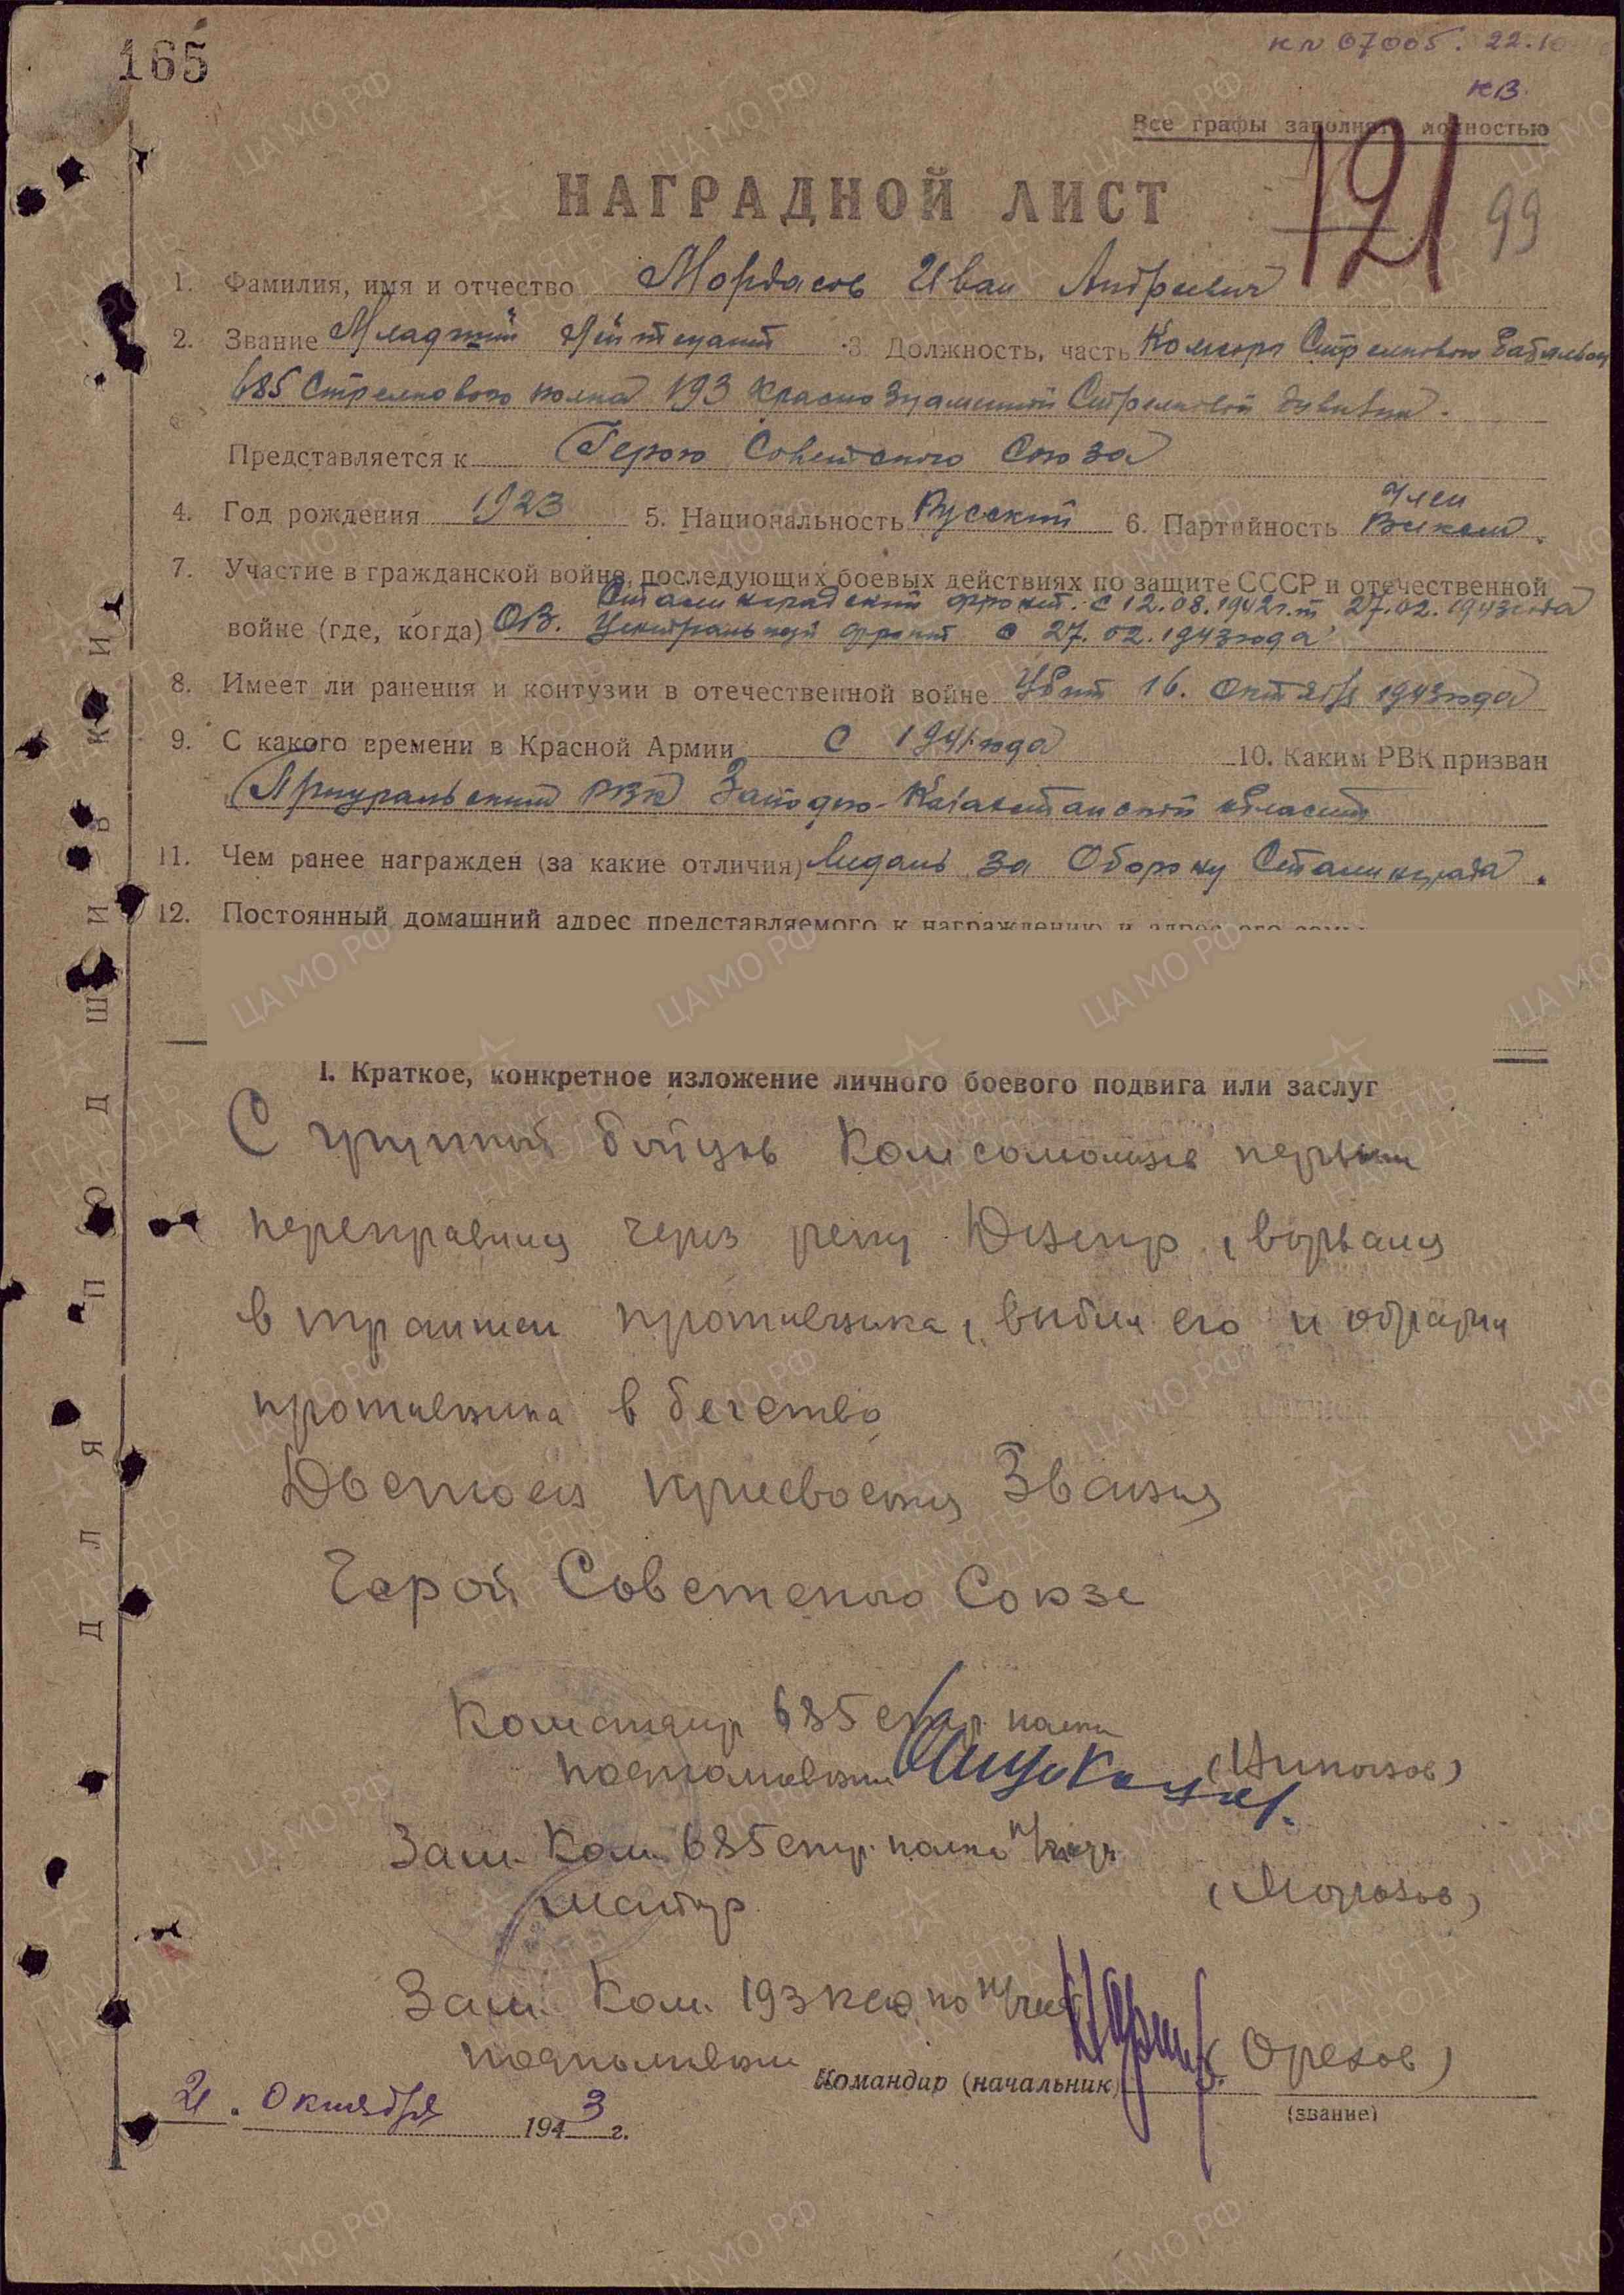 165
кл 07005. 22.10
кв.
Все графы заполнять полностью
121
99
НАГРАДНОЙ ЛИСТ
1. Фамилия, имя и отчество Мордасов Иван Андреевич
2. Звание Младший Лейтенант 3. Должность, часть Комсорг Стрелкового Батальона
685 Стрелкового полка 193 Краснознаменной Стрелковой дивизии.
Представляется к Герою Советского Союза
4. Год рождения 1923 5. Национальность Русский 6. Партийность Член Влксм.
7. Участие в гражданской войне, последующих боевых действиях по защите СССР и отечественной
Сталинградский фронт. С 12.08.1942г. 27.02.1943года
войне (где, когда) ОВ. Центральной фронт с 27.02.1943года
8. Имеет ли ранения и контузии в отечественной войне Убит 16. Октября 1943года
9. С какого времени в Красной Армии С 1941года 10. Каким РВК призван
Приуральским РВК Западно-Казахстанской области
11. Чем ранее награжден (за какие отличия) Медаль за Оборону Сталинграда.
12. Постоянный домашний адрес представляемого к награждению и адрес его семьи
I. Краткое, конкретное изложение личного боевого подвига или заслуг
С группой бойцов Комсомольцев первым
переправился через реку Днепр, ворвался
в траншеи противника, выбил его и обратил
противника в бегство
Достоен присвоения Звания
Герой Советского Союза
Командир 685 стр. полка
подполковник (Ципоизов)
Зам. Ком. 685 стр. полка п/части
майор (Морозов)
Зам. Ком. 193 ксд по п/части
подполковник (Орехов)
Командир (начальник)
(звание)
21. Октября 1943 г.
ДЛЯ ПОДШИВКИ
ЦА МО РФ
ПАМЯТЬ НАРОДА